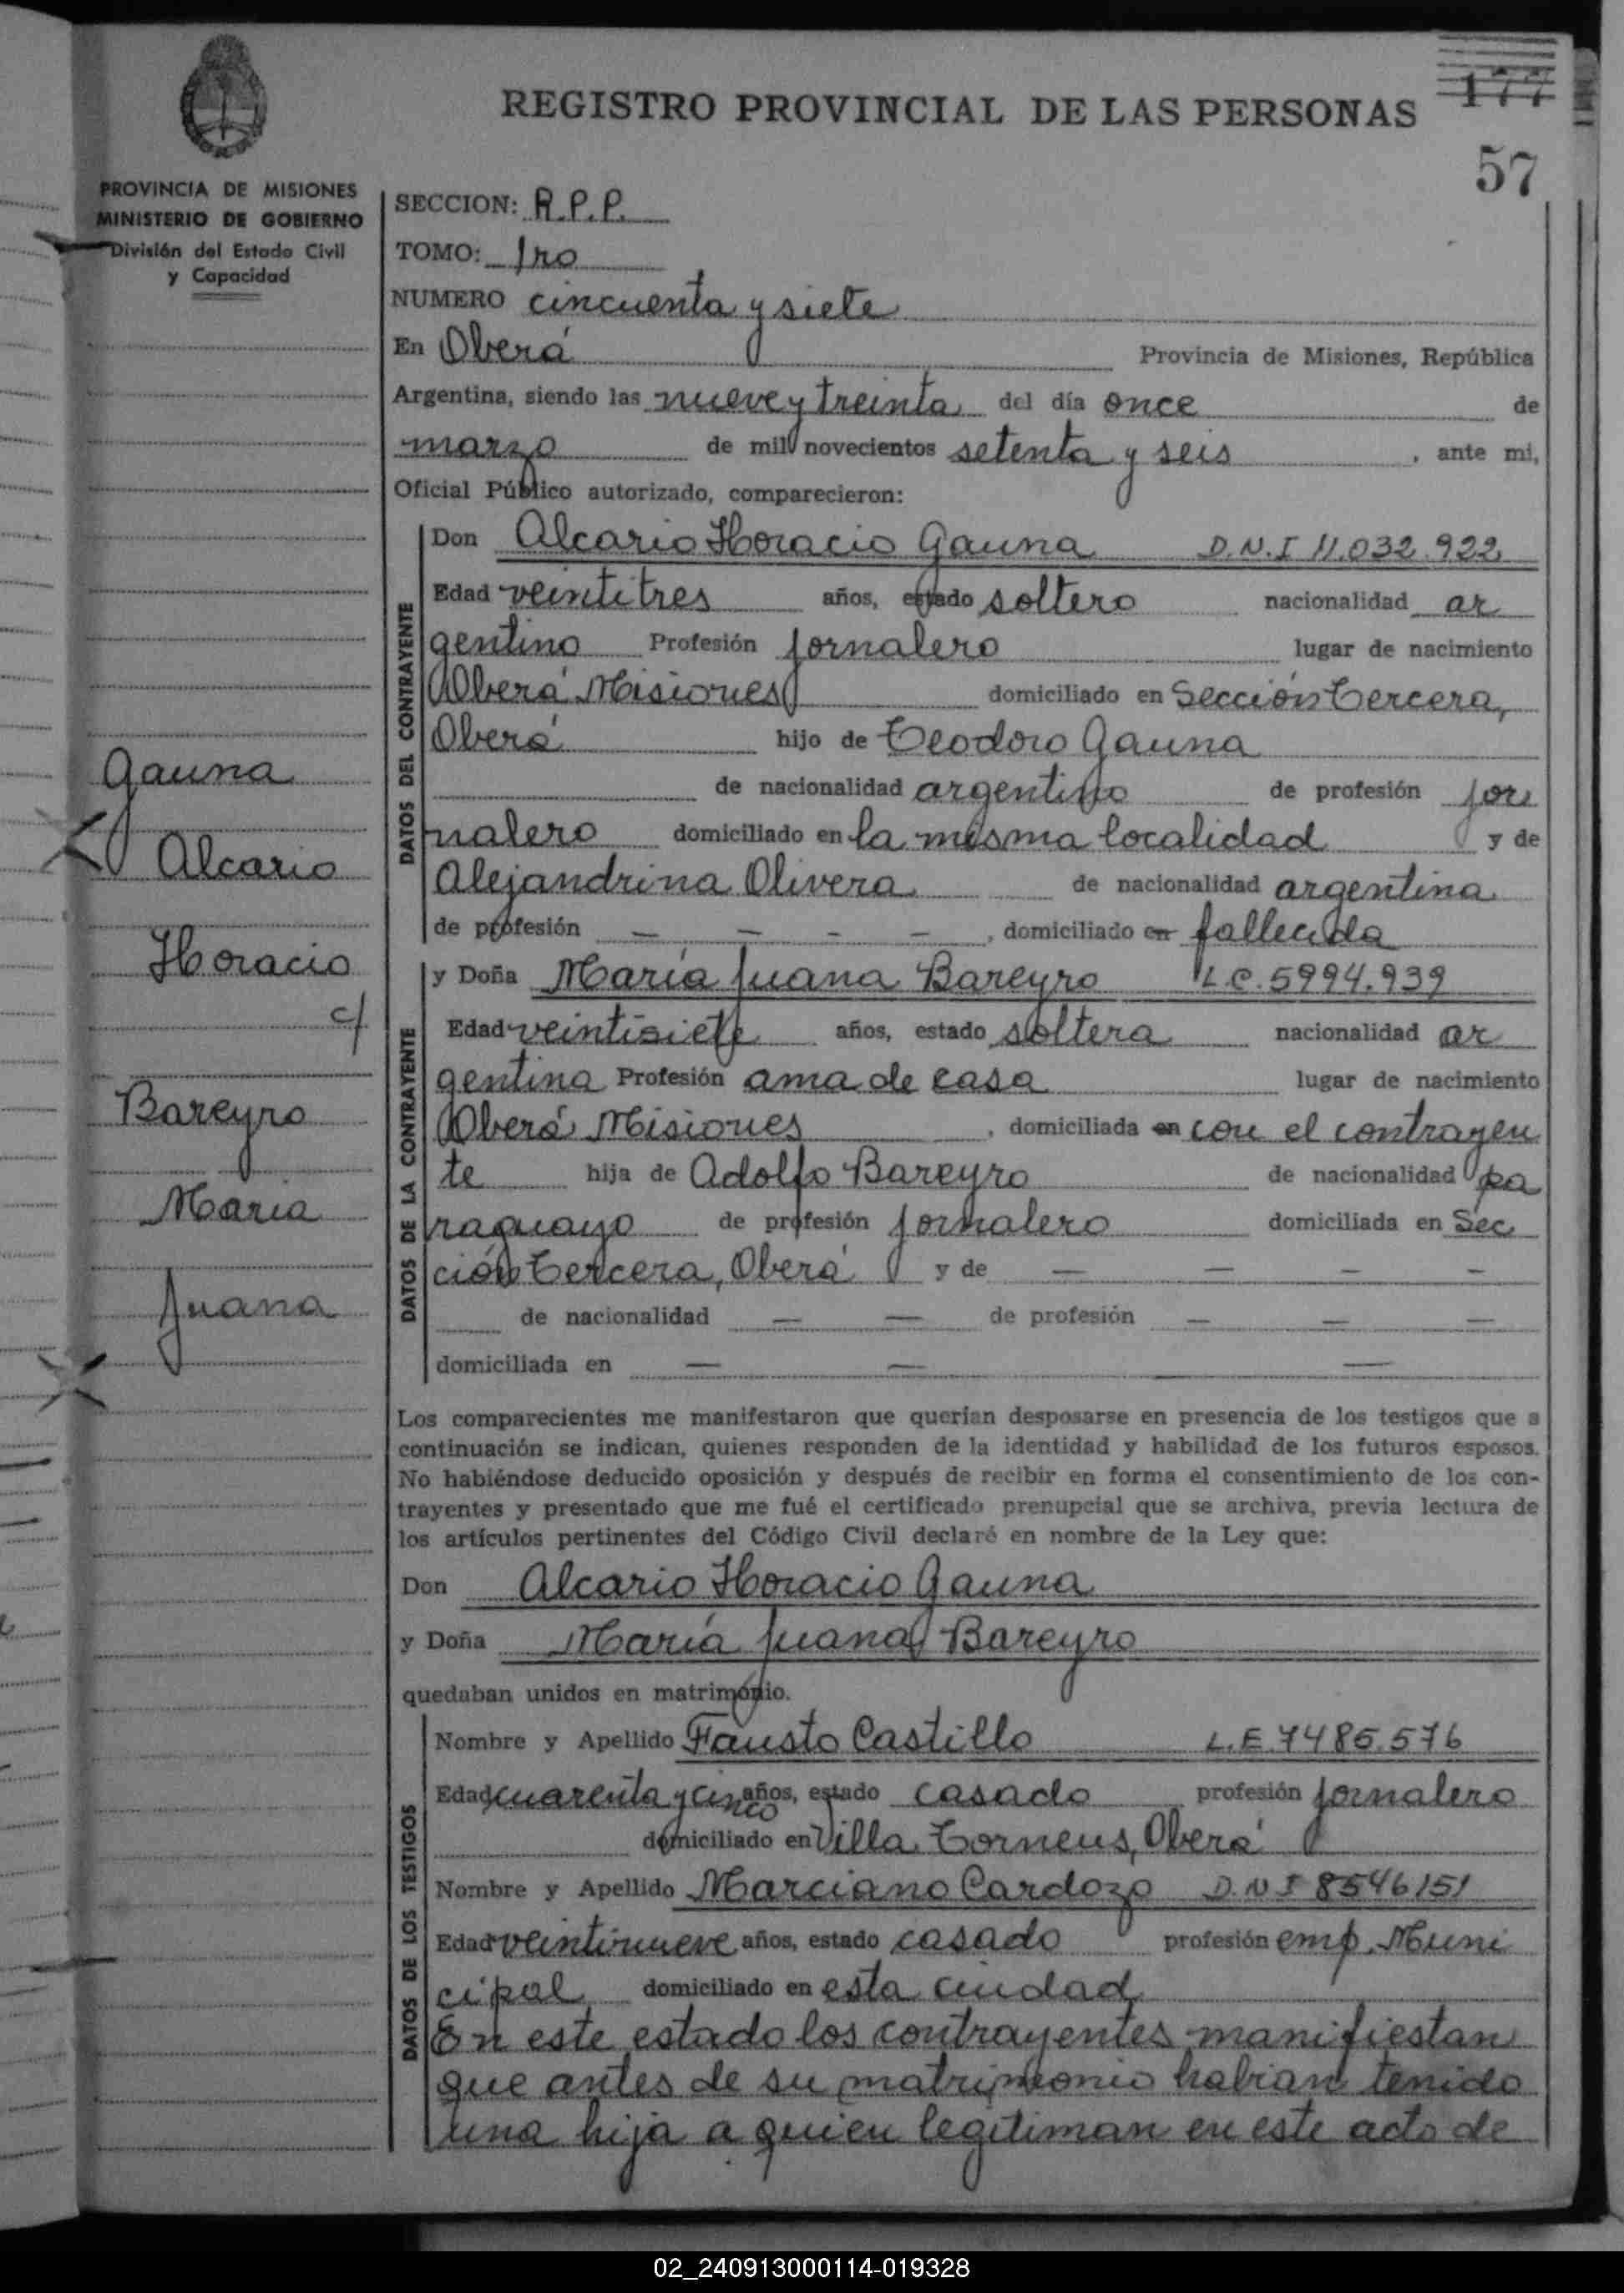 177
REGISTRO PROVINCIAL DE LAS PERSONAS
57
PROVINCIA DE MISIONES
MINISTERIO DE GOBIERNO
División del Estado Civil
y Capacidad
SECCION: R.P.P.
TOMO: 1ro
NUMERO cincuenta y siete
En Oberá Provincia de Misiones, República
Argentina, siendo las nueve y treinta del día once de
marzo de mil novecientos setenta y seis, ante mi,
Oficial Público autorizado, comparecieron:
Gauna
Alcario
Horacio
c/
Bareyro
Maria
Juana
DATOS DEL CONTRAYENTE
Don Alcario Horacio Gauna D.N.I 11.032.922
Edad veintitres años, estado soltero nacionalidad ar
gentino Profesión jornalero lugar de nacimiento
Oberá Misiones domiciliado en Sección Tercera,
Oberá hijo de Teodoro Gauna
de nacionalidad argentino de profesión jor
nalero domiciliado en la misma localidad y de
Alejandrina Olivera de nacionalidad argentina
de profesión — — - —, domiciliado en fallecida
DATOS DE LA CONTRAYENTE
y Doña María Juana Bareyro L.C. 5994.939
Edad veintisiete años, estado soltera nacionalidad ar
gentina Profesión ama de casa lugar de nacimiento
Oberá Misiones, domiciliada en con el contrayen
te hija de Adolfo Bareyro de nacionalidad pa
raguayo de profesión jornalero domiciliada en Sec
ción Tercera, Oberá y de — — - -
de nacionalidad — — de profesión — — —
domiciliada en — — —
Los comparecientes me manifestaron que querían desposarse en presencia de los testigos que a
continuación se indican, quienes responden de la identidad y habilidad de los futuros esposos.
No habiéndose deducido oposición y después de recibir en forma el consentimiento de los con-
trayentes y presentado que me fué el certificado prenupcial que se archiva, previa lectura de
los artículos pertinentes del Código Civil declaré en nombre de la Ley que:
Don Alcario Horacio Gauna
y Doña María Juana Bareyro
quedaban unidos en matrimonio.
DATOS DE LOS TESTIGOS
Nombre y Apellido Fausto Castillo L.E. 7485.576
Edad cuarenta y cinco años, estado casado profesión jornalero
domiciliado en Villa Torneus, Oberá
Nombre y Apellido Marciano Cardozo D.N.I 8546151
Edad veintinueve años, estado casado profesión emp. Muni
cipal domiciliado en esta ciudad
En este estado los contrayentes manifiestan
que antes de su matrimonio habian tenido
una hija a quien legitiman en este acto de
02_240913000114-019328